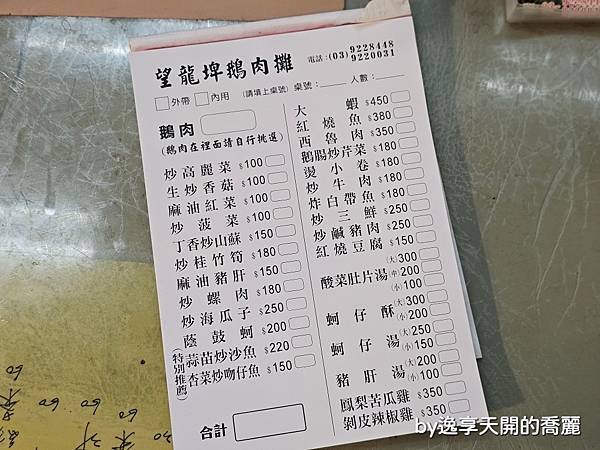 望龍埤鵝肉攤
電話:(03) 9228448
9220031
外帶 內用 (請填上桌號) 桌號: 人數:
鵝肉
(鵝肉在裡面請自行挑選)
炒高麗菜 $100
生炒香菇 $100
麻油紅菜 $100
炒菠菜 $100
丁香炒山蘇 $150
炒桂竹筍 $180
麻油豬肝 $150
炒螺肉 $180
炒海瓜子 $250
蔭鼓蚵 $200
(特別推薦)
蒜苗炒沙魚 $220
杏菜炒吻仔魚 $150
合計
大蝦 $450
紅燒魚 $380
西魯肉 $350
鵝腸炒芹菜 $180
燙小卷 $180
炒牛肉 $180
炸白帶魚 $180
炒三鮮 $250
炒鹹豬肉 $250
紅燒豆腐 $150
酸菜肚片湯 (大) 300
(中) 200
(小) 100
蚵仔酥 (大) 300
(小) 200
蚵仔湯 (大) 250
(小) 150
豬肝湯 (大) 200
(小) 100
鳳梨苦瓜雞 $350
剝皮辣椒雞 $350
by逸享天開的喬麗